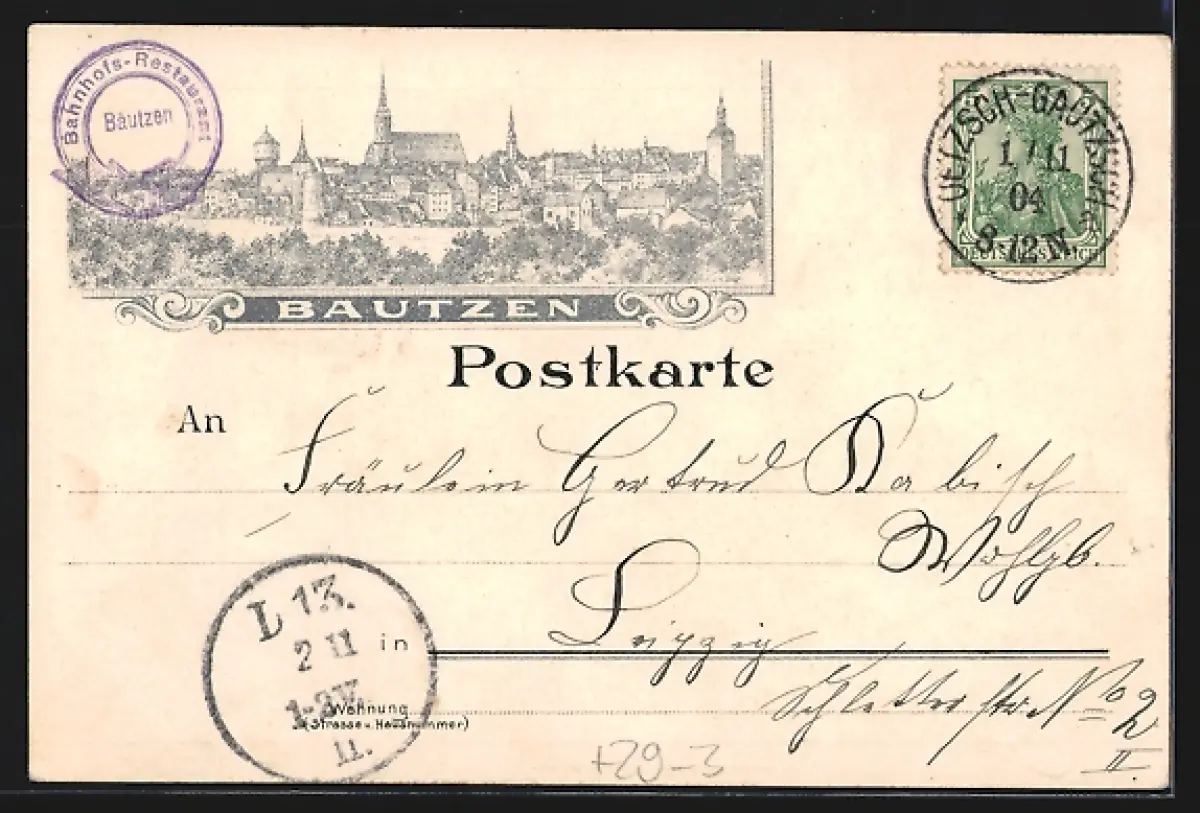 Bahnhofs-Restaurant
Bautzen
OETZSCH-GAUTZSCH
1/11
04
8-12 N.
DEUTSCHES REICH
BAUTZEN
Postkarte
An
Fräulein Gertrud Kabisch
Wohlgb.
L 13.
2 11
in Leipzig
1-2V.
Wohnung
(Strasse u. Hausnummer)
Schletterstr. No 2
II.
II.
+29-3